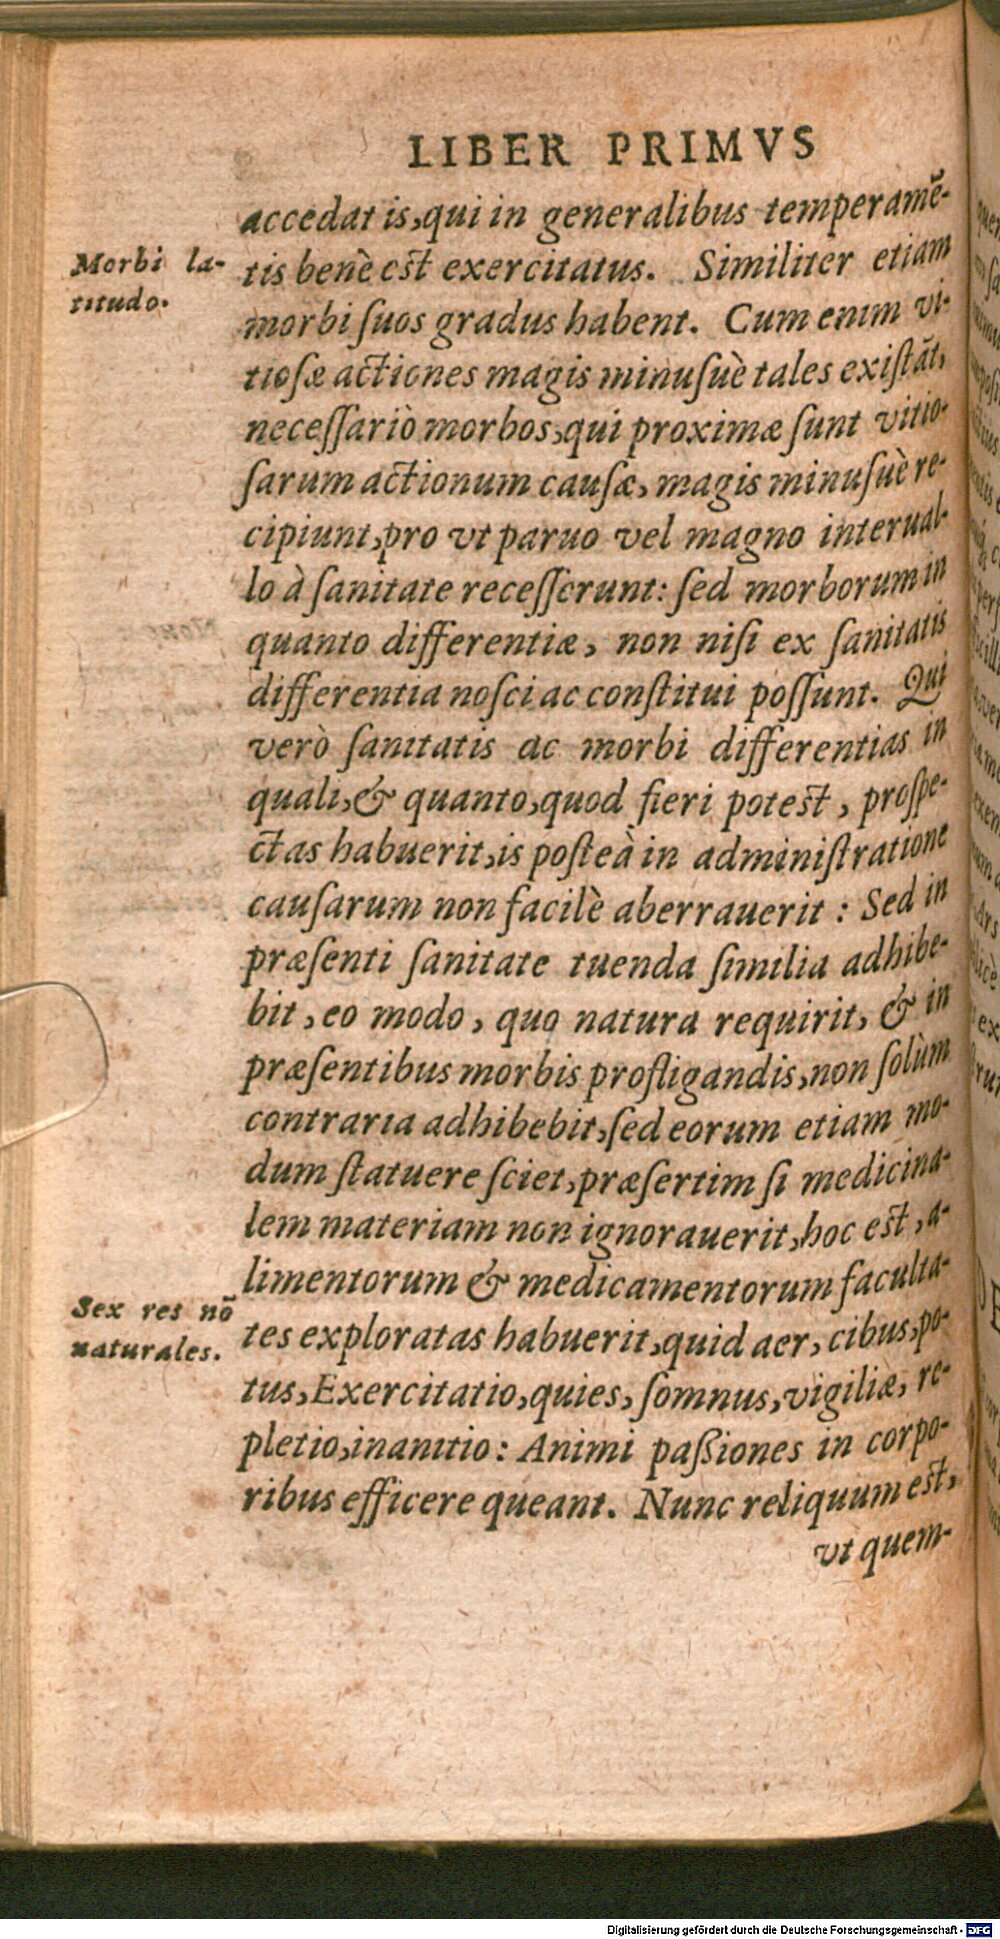 LIBER PRIMVS
accedat is, qui in generalibus temperamē-
tis benè est exercitatus. Similiter etiam
Morbi la-
titudo.
morbi ſuos gradus habent. Cum enim vi-
tioſæ actiones magis minuſuè tales exiſtāt,
neceſſariò morbos, qui proximæ ſunt vitio-
ſarum actionum cauſæ, magis minuſuè re-
cipiunt, pro vt paruo vel magno interual-
lo à ſanitate receſſerunt: ſed morborum in
quanto differentiæ, non niſi ex ſanitatis
differentia noſci ac conſtitui poſſunt. Qui
verò ſanitatis ac morbi differentias in
quali, & quanto, quod fieri poteſt, proſpe-
ctas habuerit, is poſteà in adminiſtratione
cauſarum non facilè aberrauerit: Sed in
præſenti ſanitate tuenda ſimilia adhibe-
bit, eo modo, quo natura requirit, & in
præſentibus morbis profligandis, non ſolùm
contraria adhibebit, ſed eorum etiam mo-
dum ſtatuere ſciet, præſertim ſi medicina-
lem materiam non ignorauerit, hoc eſt, a-
limentorum & medicamentorum faculta-
Sex res nō
naturales.
tes exploratas habuerit, quid aer, cibus, po-
tus, Exercitatio, quies, ſomnus, vigiliæ, re-
pletio, inanitio: Animi paßiones in corpo-
ribus efficere queant. Nunc reliquum eſt,
vt quem-
Digitalisierung gefördert durch die Deutsche Forschungsgemeinschaft - DFG